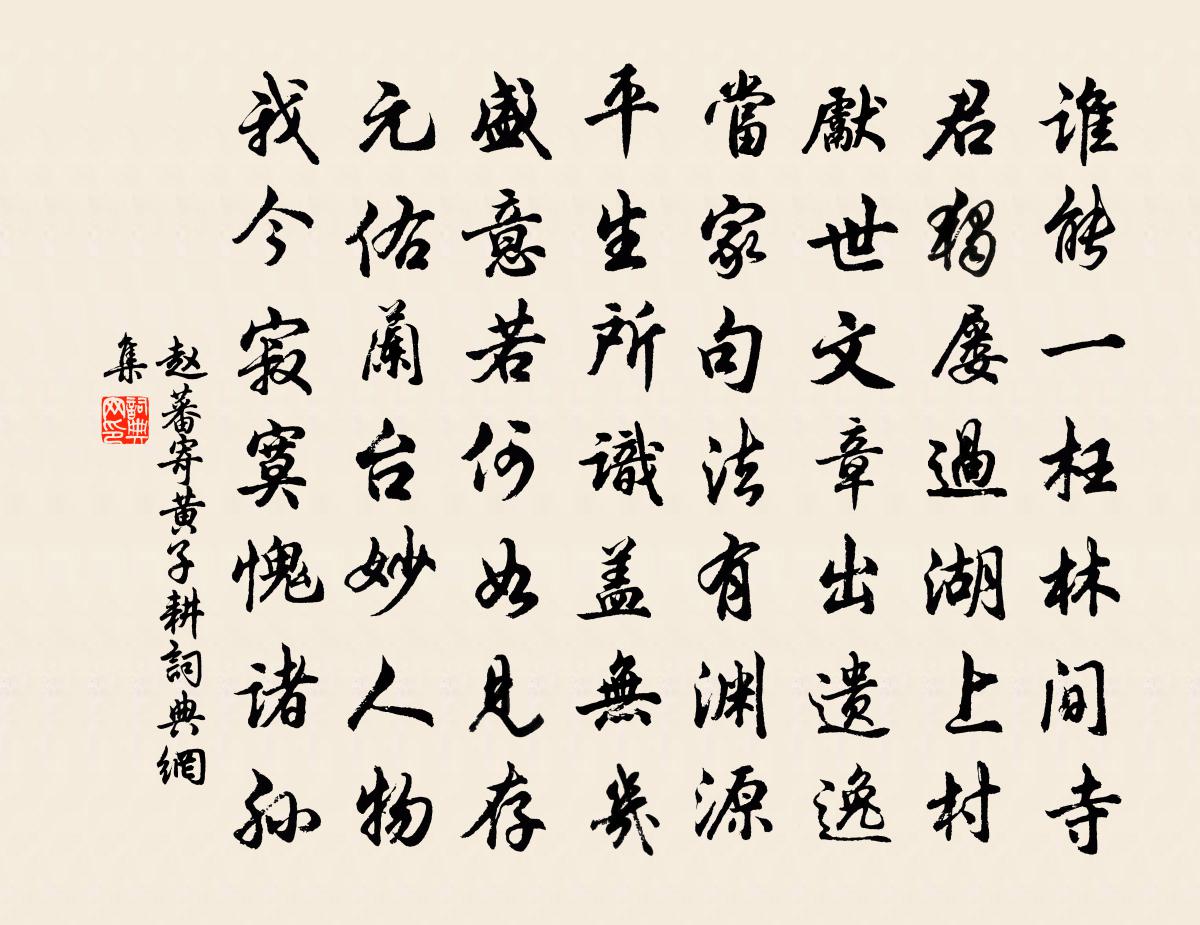 谁能一枉林间寺
君獨屡過湖上村
獻世文章出遗逸
當家句法有渊源
平生所識盖無幾
盛意若何如見存
元佑蘭台妙人物
我今寂寞愧诸孙
赵蕃寄黄子耕詞典網
集
詞典网印